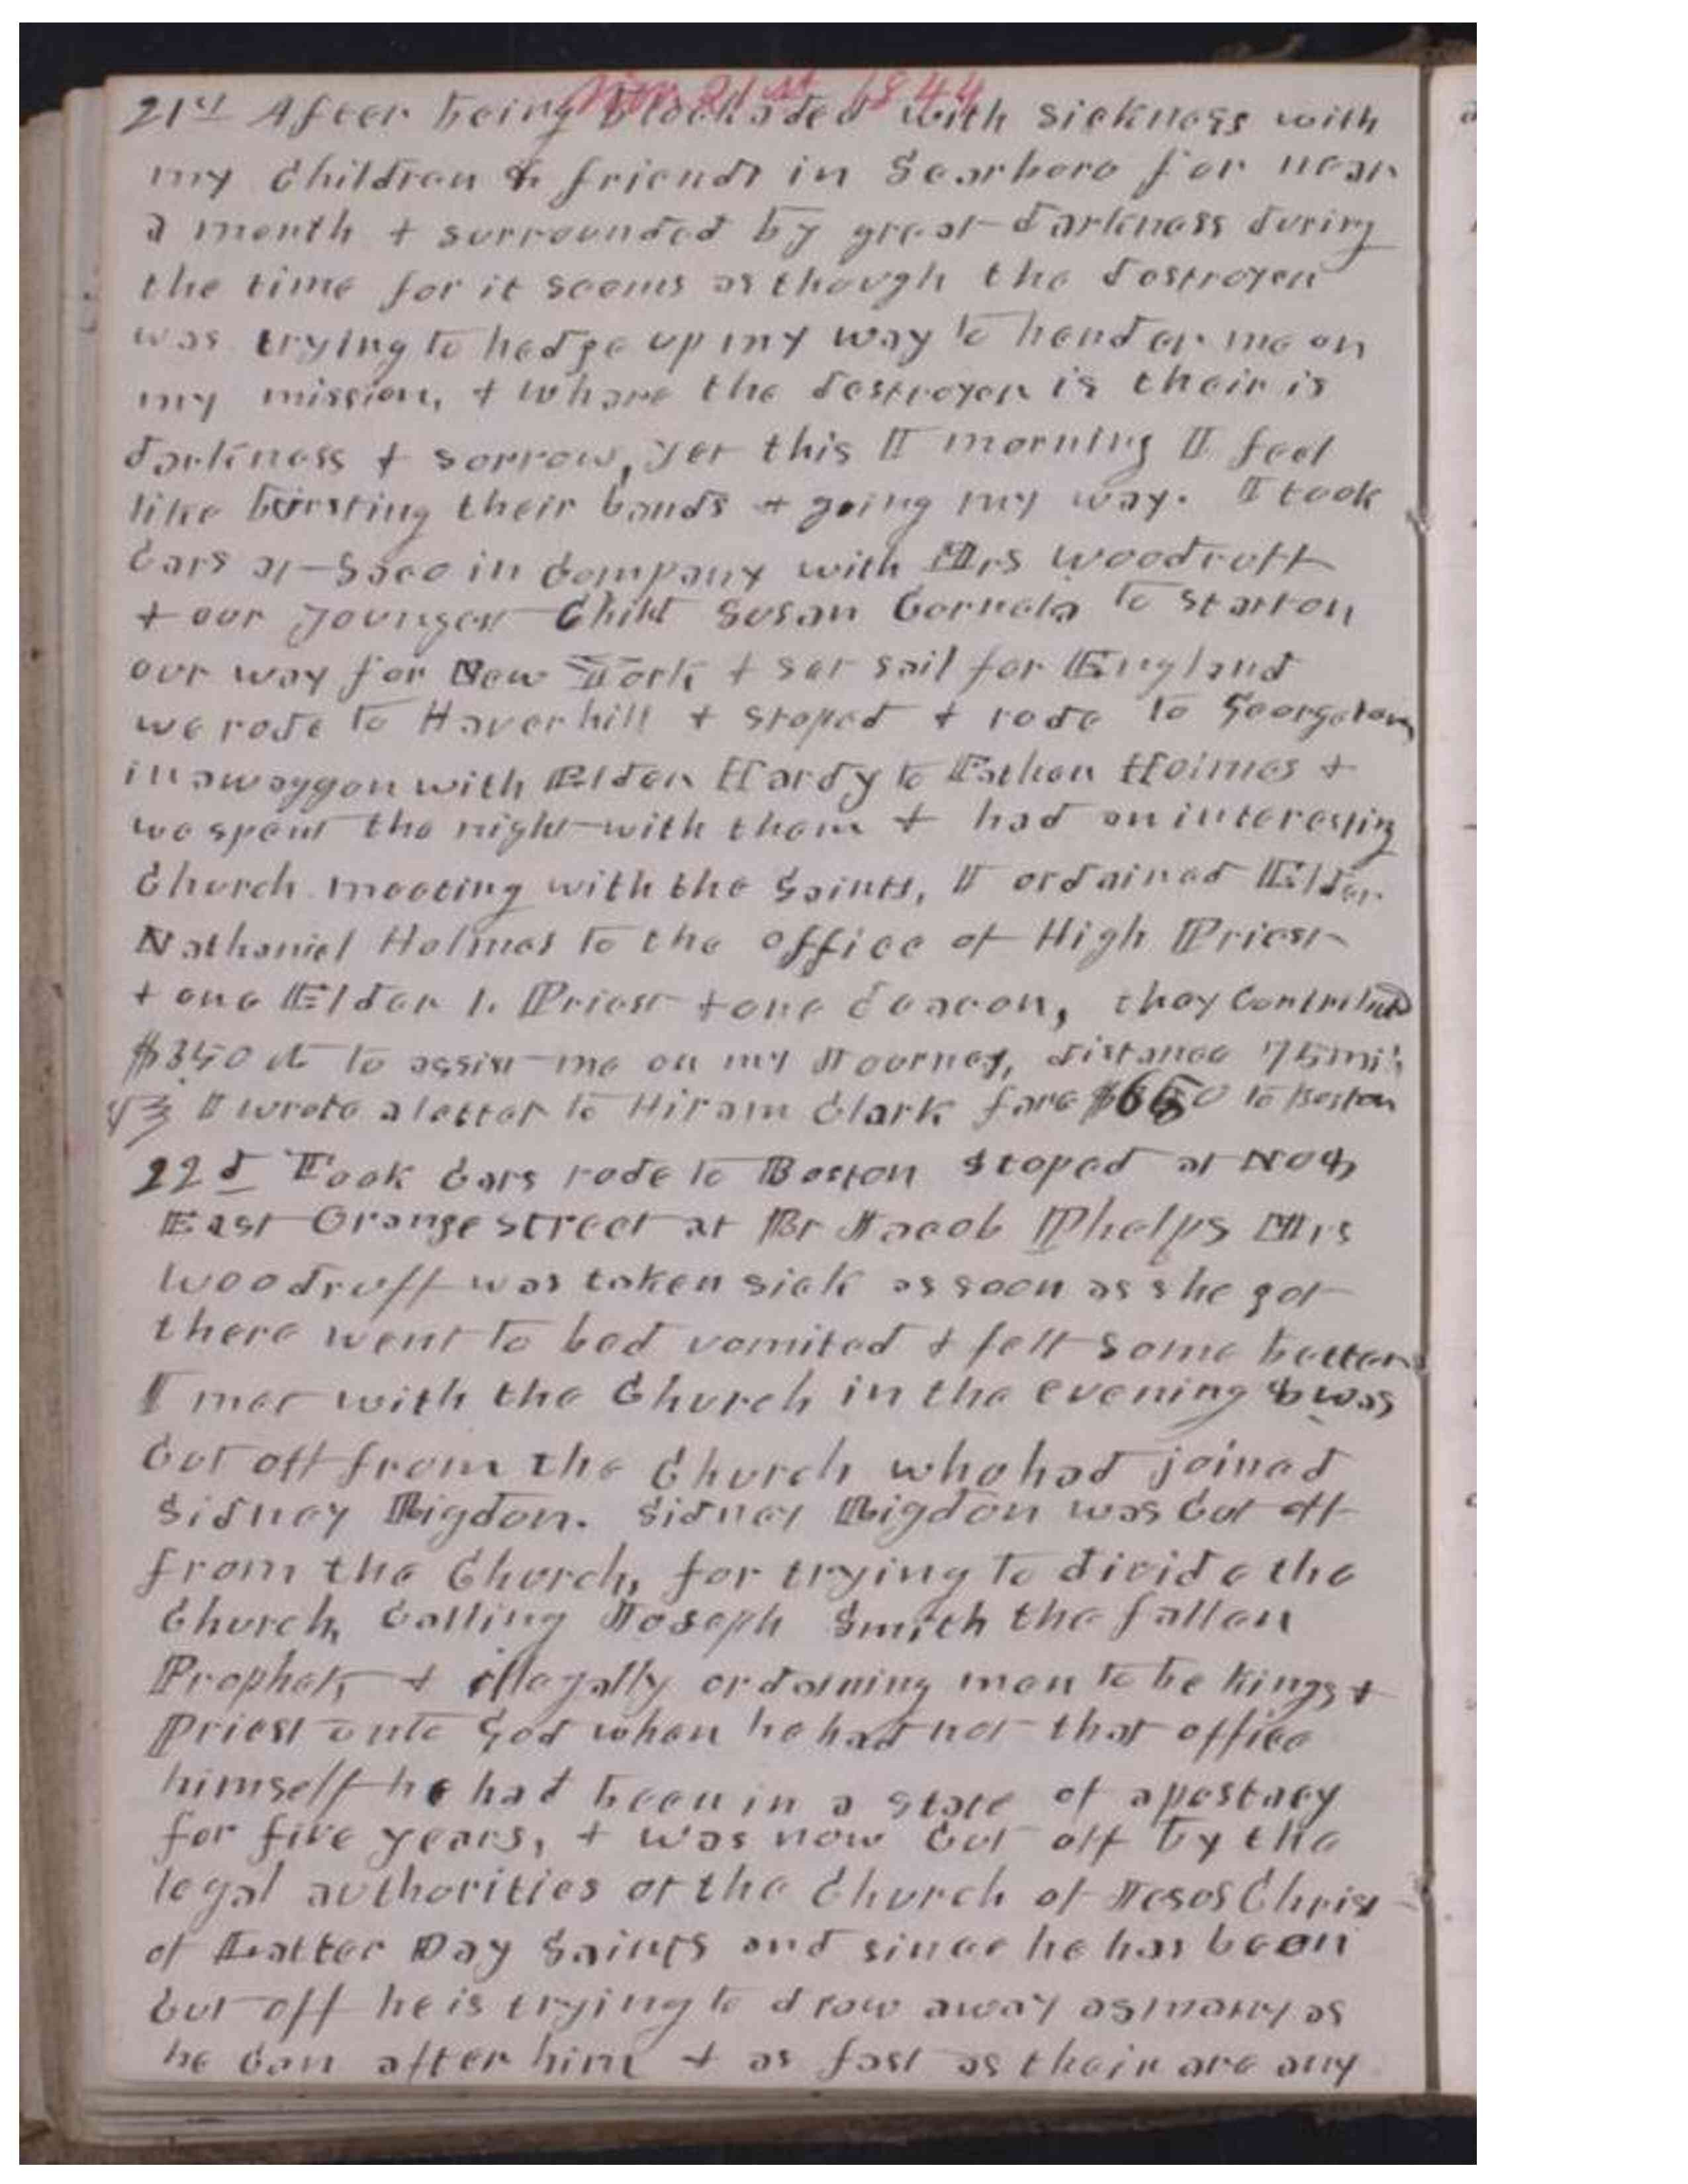 Nov 21st 1844
21st After being blockaded with sickness with
my Children & friends in Scarboro for near
a month & surrounded by great darkness during
the time for it seems as though the destroyer
was trying to hedge up my way to hender me on
my mission, & whare the destroyer is their is
darkness & sorrow, yet this I morning I feel
like bursting their bands & going my way. I took
Cars at Saco in Company with Mrs Woodruff
& our youngest Child Susan Cornela to start on
our way for New York & set sail for England
we rode to Haverhill & stoped & rode to Georgetown
in a waggon with Elder Hardy to Father Holmes &
we spent the night with them & had an interesting
Church meeting with the Saints, I ordained Elder
Nathaniel Holmes to the office of High Priest
& one Elder 1. Priest & one deacon, they Contributed
$350 ct to assist me on my Journey, distance 75 mi's
I wrote a letter to Hiram Clark fare $650 to Boston
22d Took Cars rode to Boston Stoped at No
East Orange street at Br Jacob Phelps Mrs
Woodruff was taken sick as soon as she got
there went to bed vomited & felt some better
I met with the Church in the evening was
Cut off from the Church who had joined
Sidney Rigdon. Sidney Rigdon was Cut off
from the Church, for trying to divide the
Church, Calling Joseph Smith the fallen
Prophet, & illegally ordaining men to be Kings &
Priest unto God when he had not that office
himself he had been in a state of apostacy
for five years, & was now Cut off by the
legal authorities of the Church of Jesus Christ
of Latter Day Saints and since he has been
Cut off he is trying to draw away as many as
he Can after him & as fast as their are any